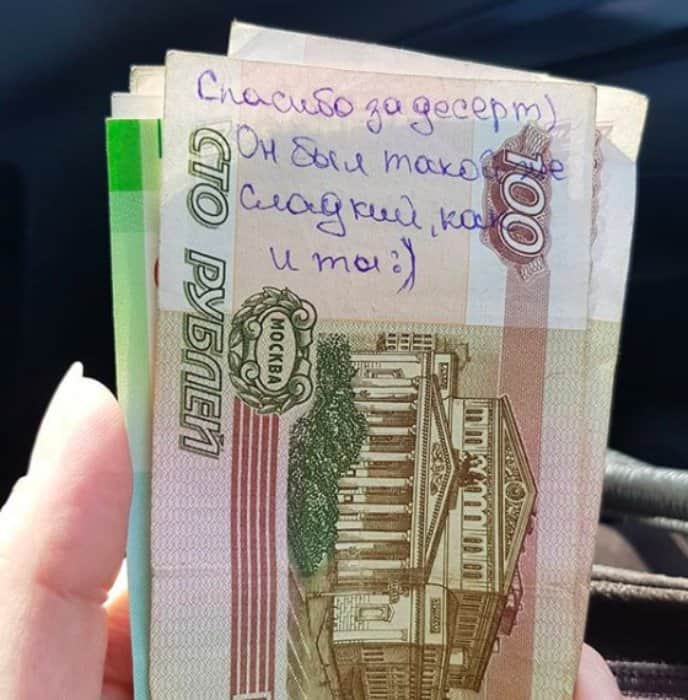 Спасибо за десерт)
Он был такой же
сладкий, как
и ты:)
100
СТО РУБЛЕЙ
МОСКВА